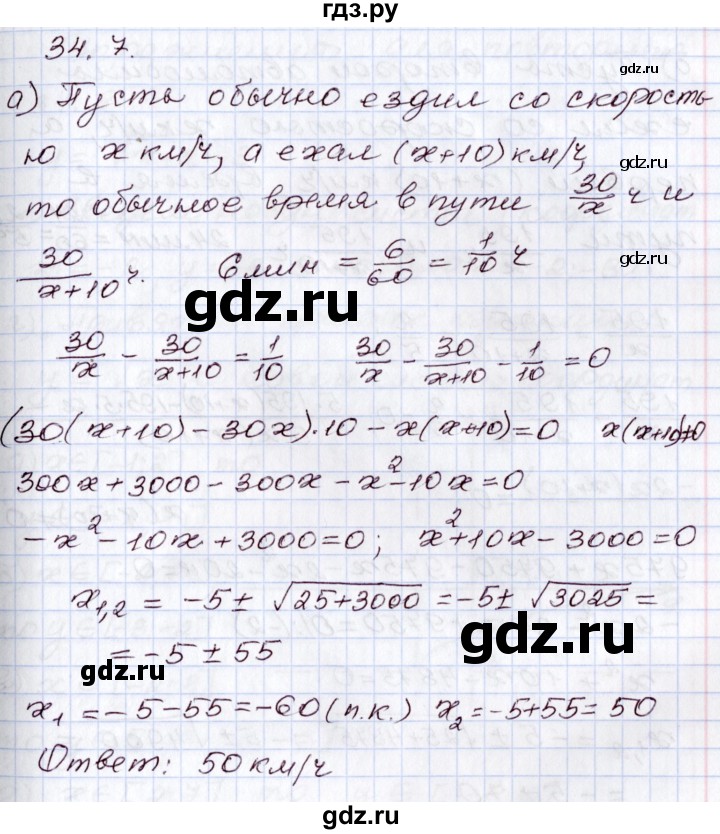 гдз.ру
34.7.
gdz.ru
а) Пусть обычно ездил со скорость
ю x км/ч, а ехал (x+10) км/ч,
gdz.ru
то обычное время в пути 30/x ч и
30/(x+10) ч. 6 мин = 6/60 = 1/10 ч
gdz.ru
gdz.ru
30/x - 30/(x+10) = 1/10 30/x - 30/(x+10) - 1/10 = 0
(30(x+10) - 30x)·10 - x(x+10) = 0 x(x+10)≠0
gdz.ru
300x + 3000 - 300x - x² - 10x = 0
-x² - 10x + 3000 = 0; x² + 10x - 3000 = 0
x₁,₂ = -5 ± √25+3000 = -5 ± √3025 =
gdz.ru
= -5 ± 55
gdz.ru
x₁ = -5 - 55 = -60 (п.к.) x₂ = -5 + 55 = 50
Ответ: 50 км/ч
gdz.ru
gdz.ru